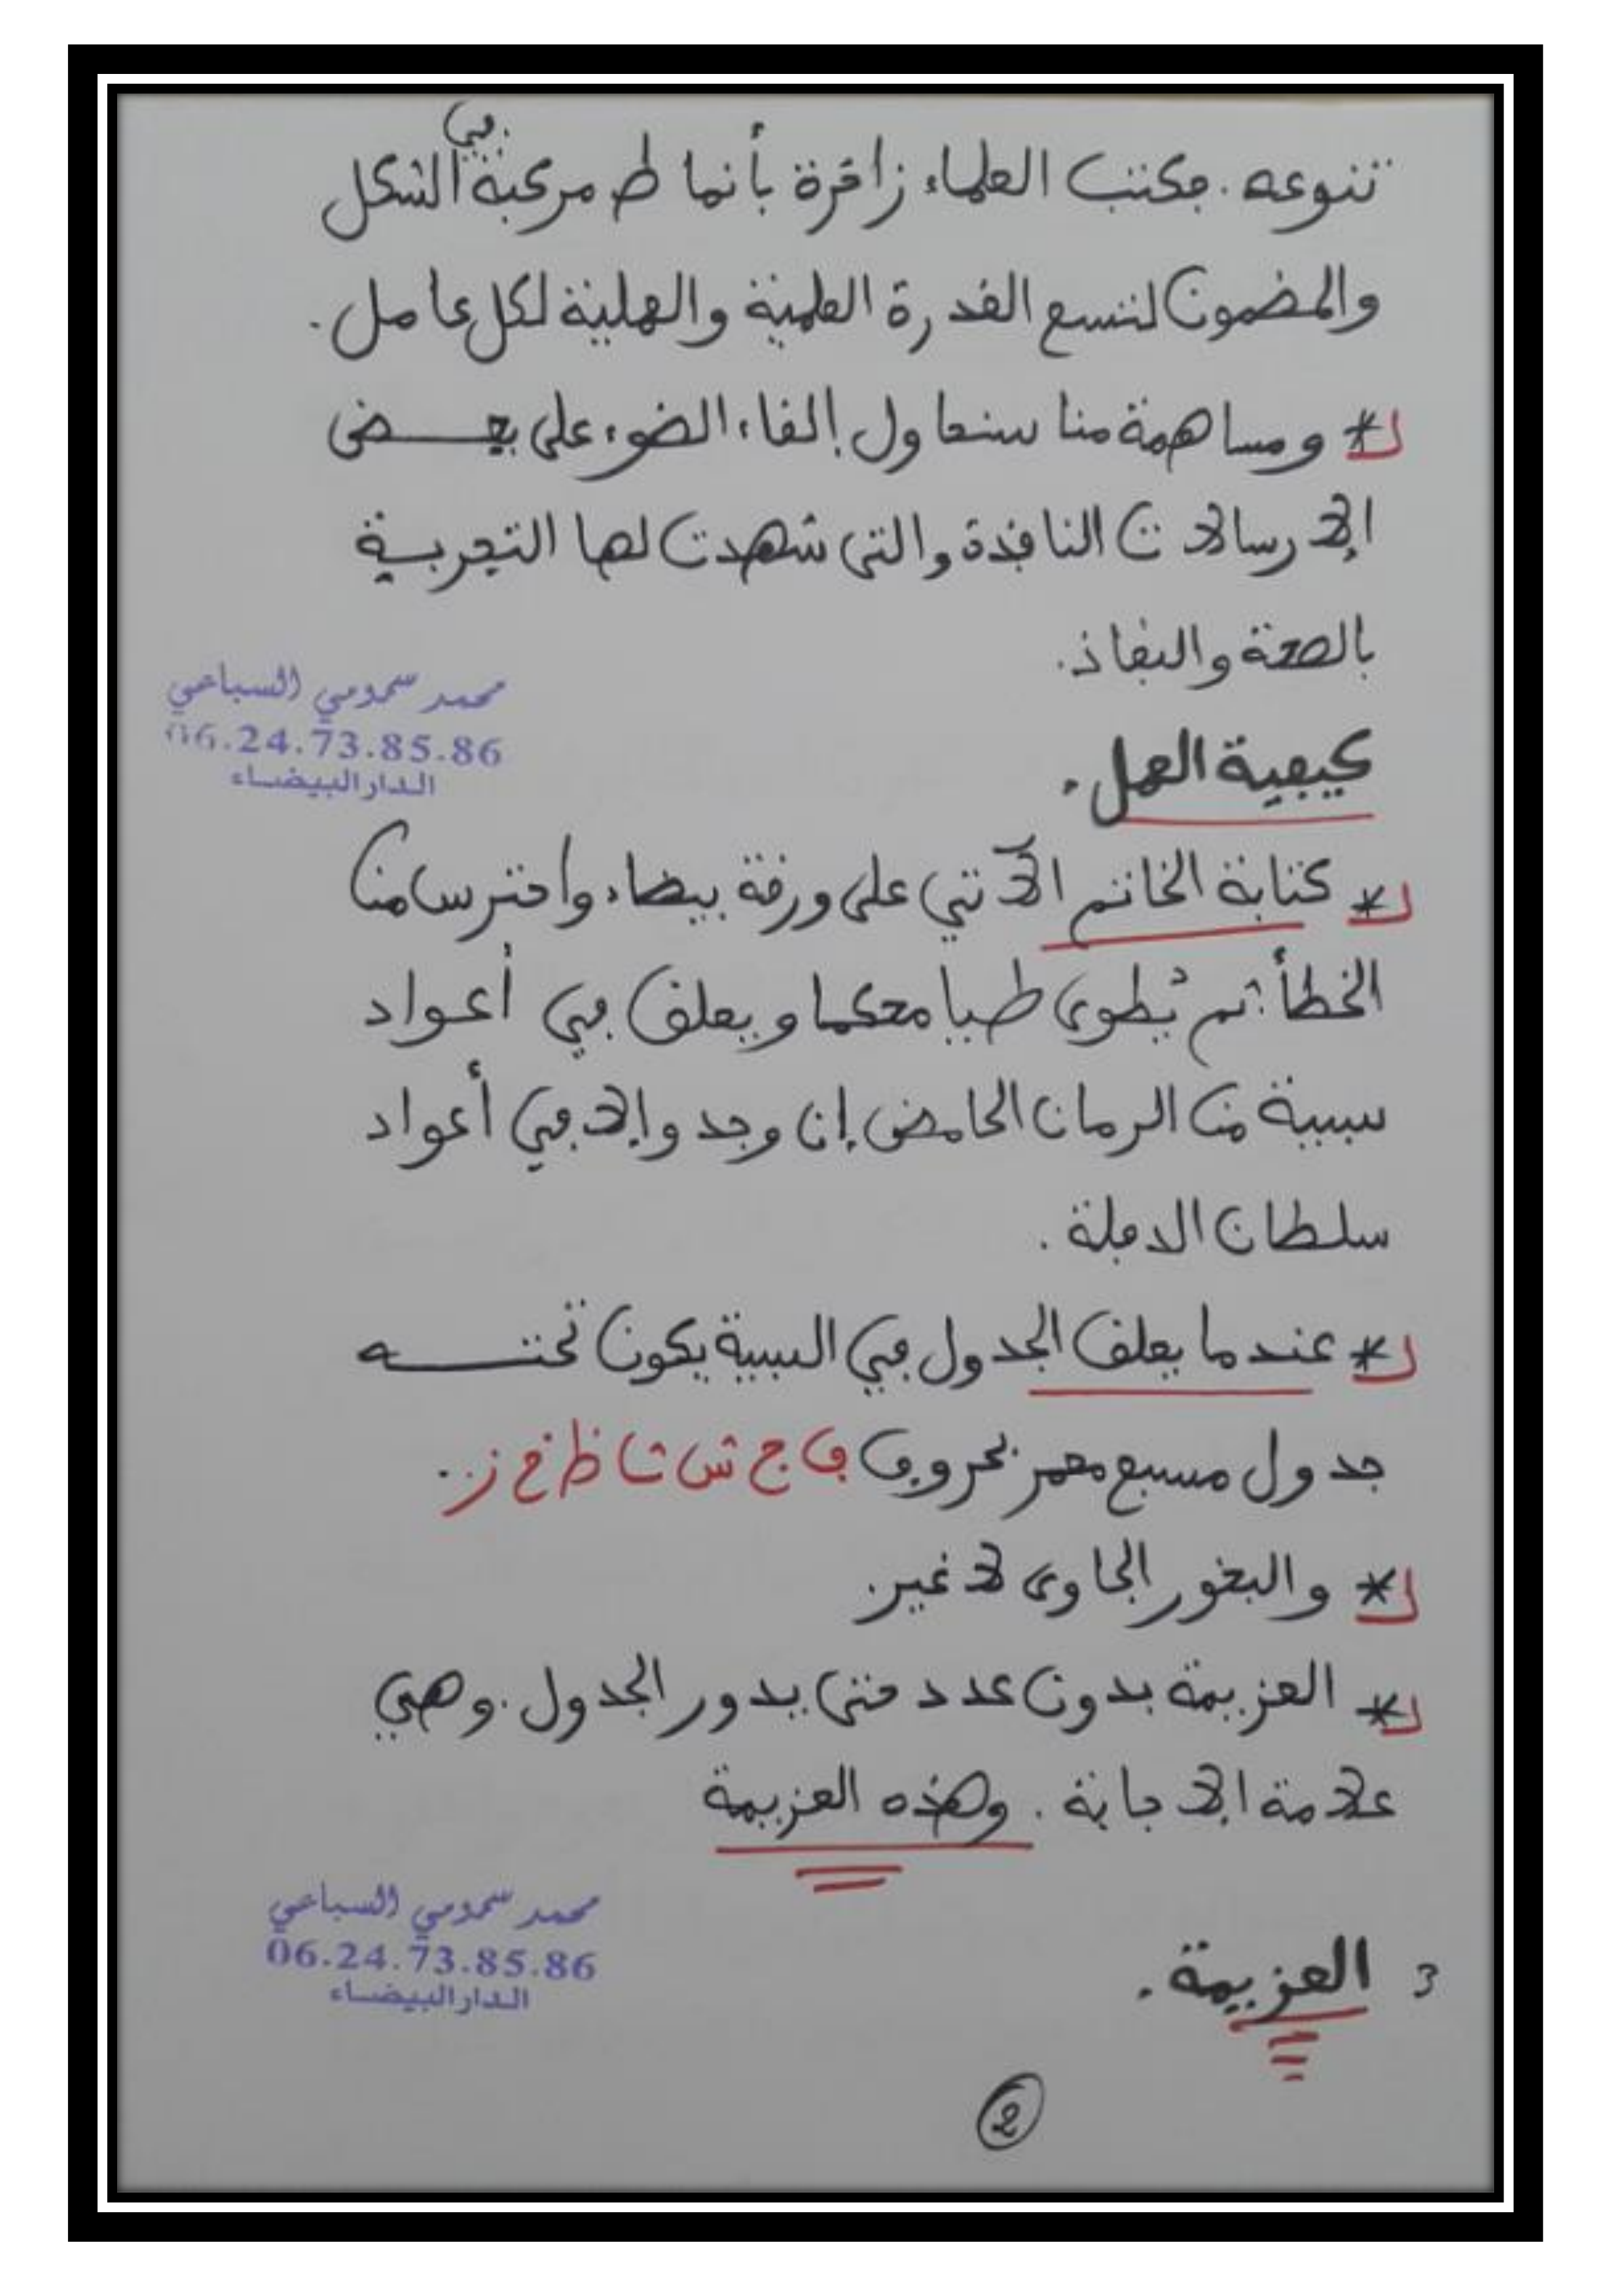 تنوعه. فكتب العلماء زاخرة بأنماط مركبة في الشكل
والمضمون لتسع القدرة العلمية والعملية لكل عامل.
* ومساهمة منا سنحاول إلقاء الضوء على بعض
الإرسالات النافذة والتي شهدت لها التجربة
بالصحة والنفاذ.
محمد سمومي السباعي
06.24.73.85.86
الدار البيضاء
كيفية العمل.
* كتابة الخاتم الآتي على ورقة بيضاء واحترس من
الخطأ ثم يُطوى طيا محكما ويعلق في أعواد
سيبية من الرمان الحامض إن وجد وإلا في أعواد
سلطان الدفلة.
* عندما يعلق الجدول في السيبية يكون تحته
جدول مسبع معمر بحروف ف ج ش ث ظ خ ز.
* والبخور الجاوى لا غير.
* العزيمة بدون عدد حتى يدور الجدول. وهي
علامة الإجابة. وهذه العزيمة
محمد سمومي السباعي
06.24.73.85.86
الدار البيضاء
3 العزيمة.
2